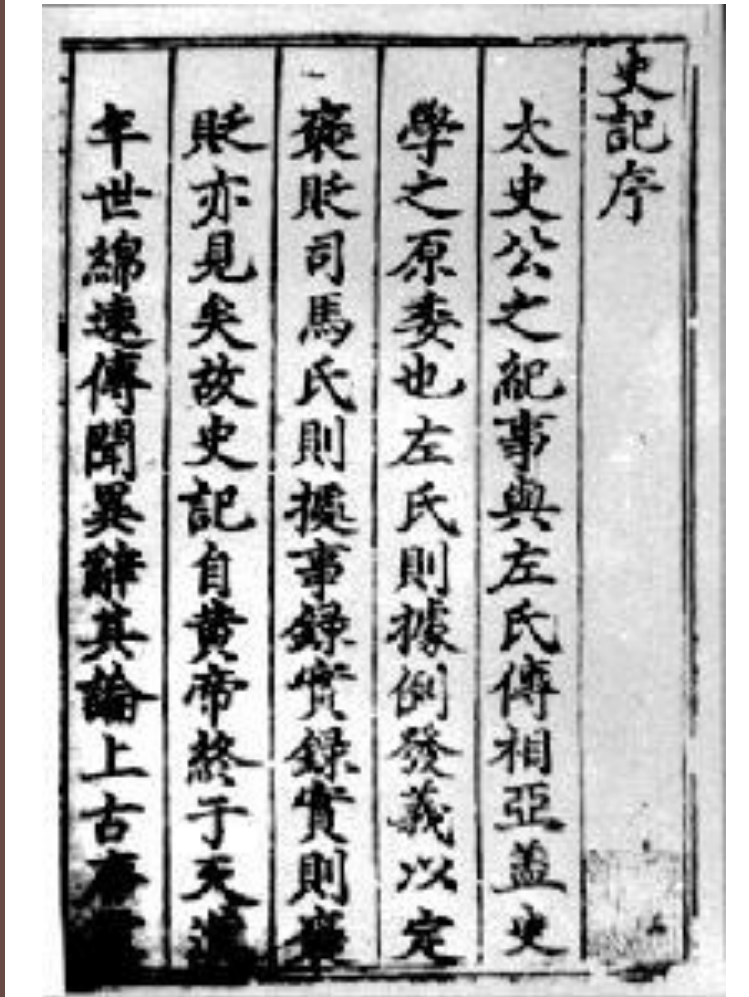 史記序
太史公之紀事與左氏傳相亞盖史
學之原委也左氏則據例發義以定
褒貶司馬氏則摭事録實録實則褒
貶亦見矣故史記自黄帝終于天漢
年世綿遠傳聞異辭其論上古